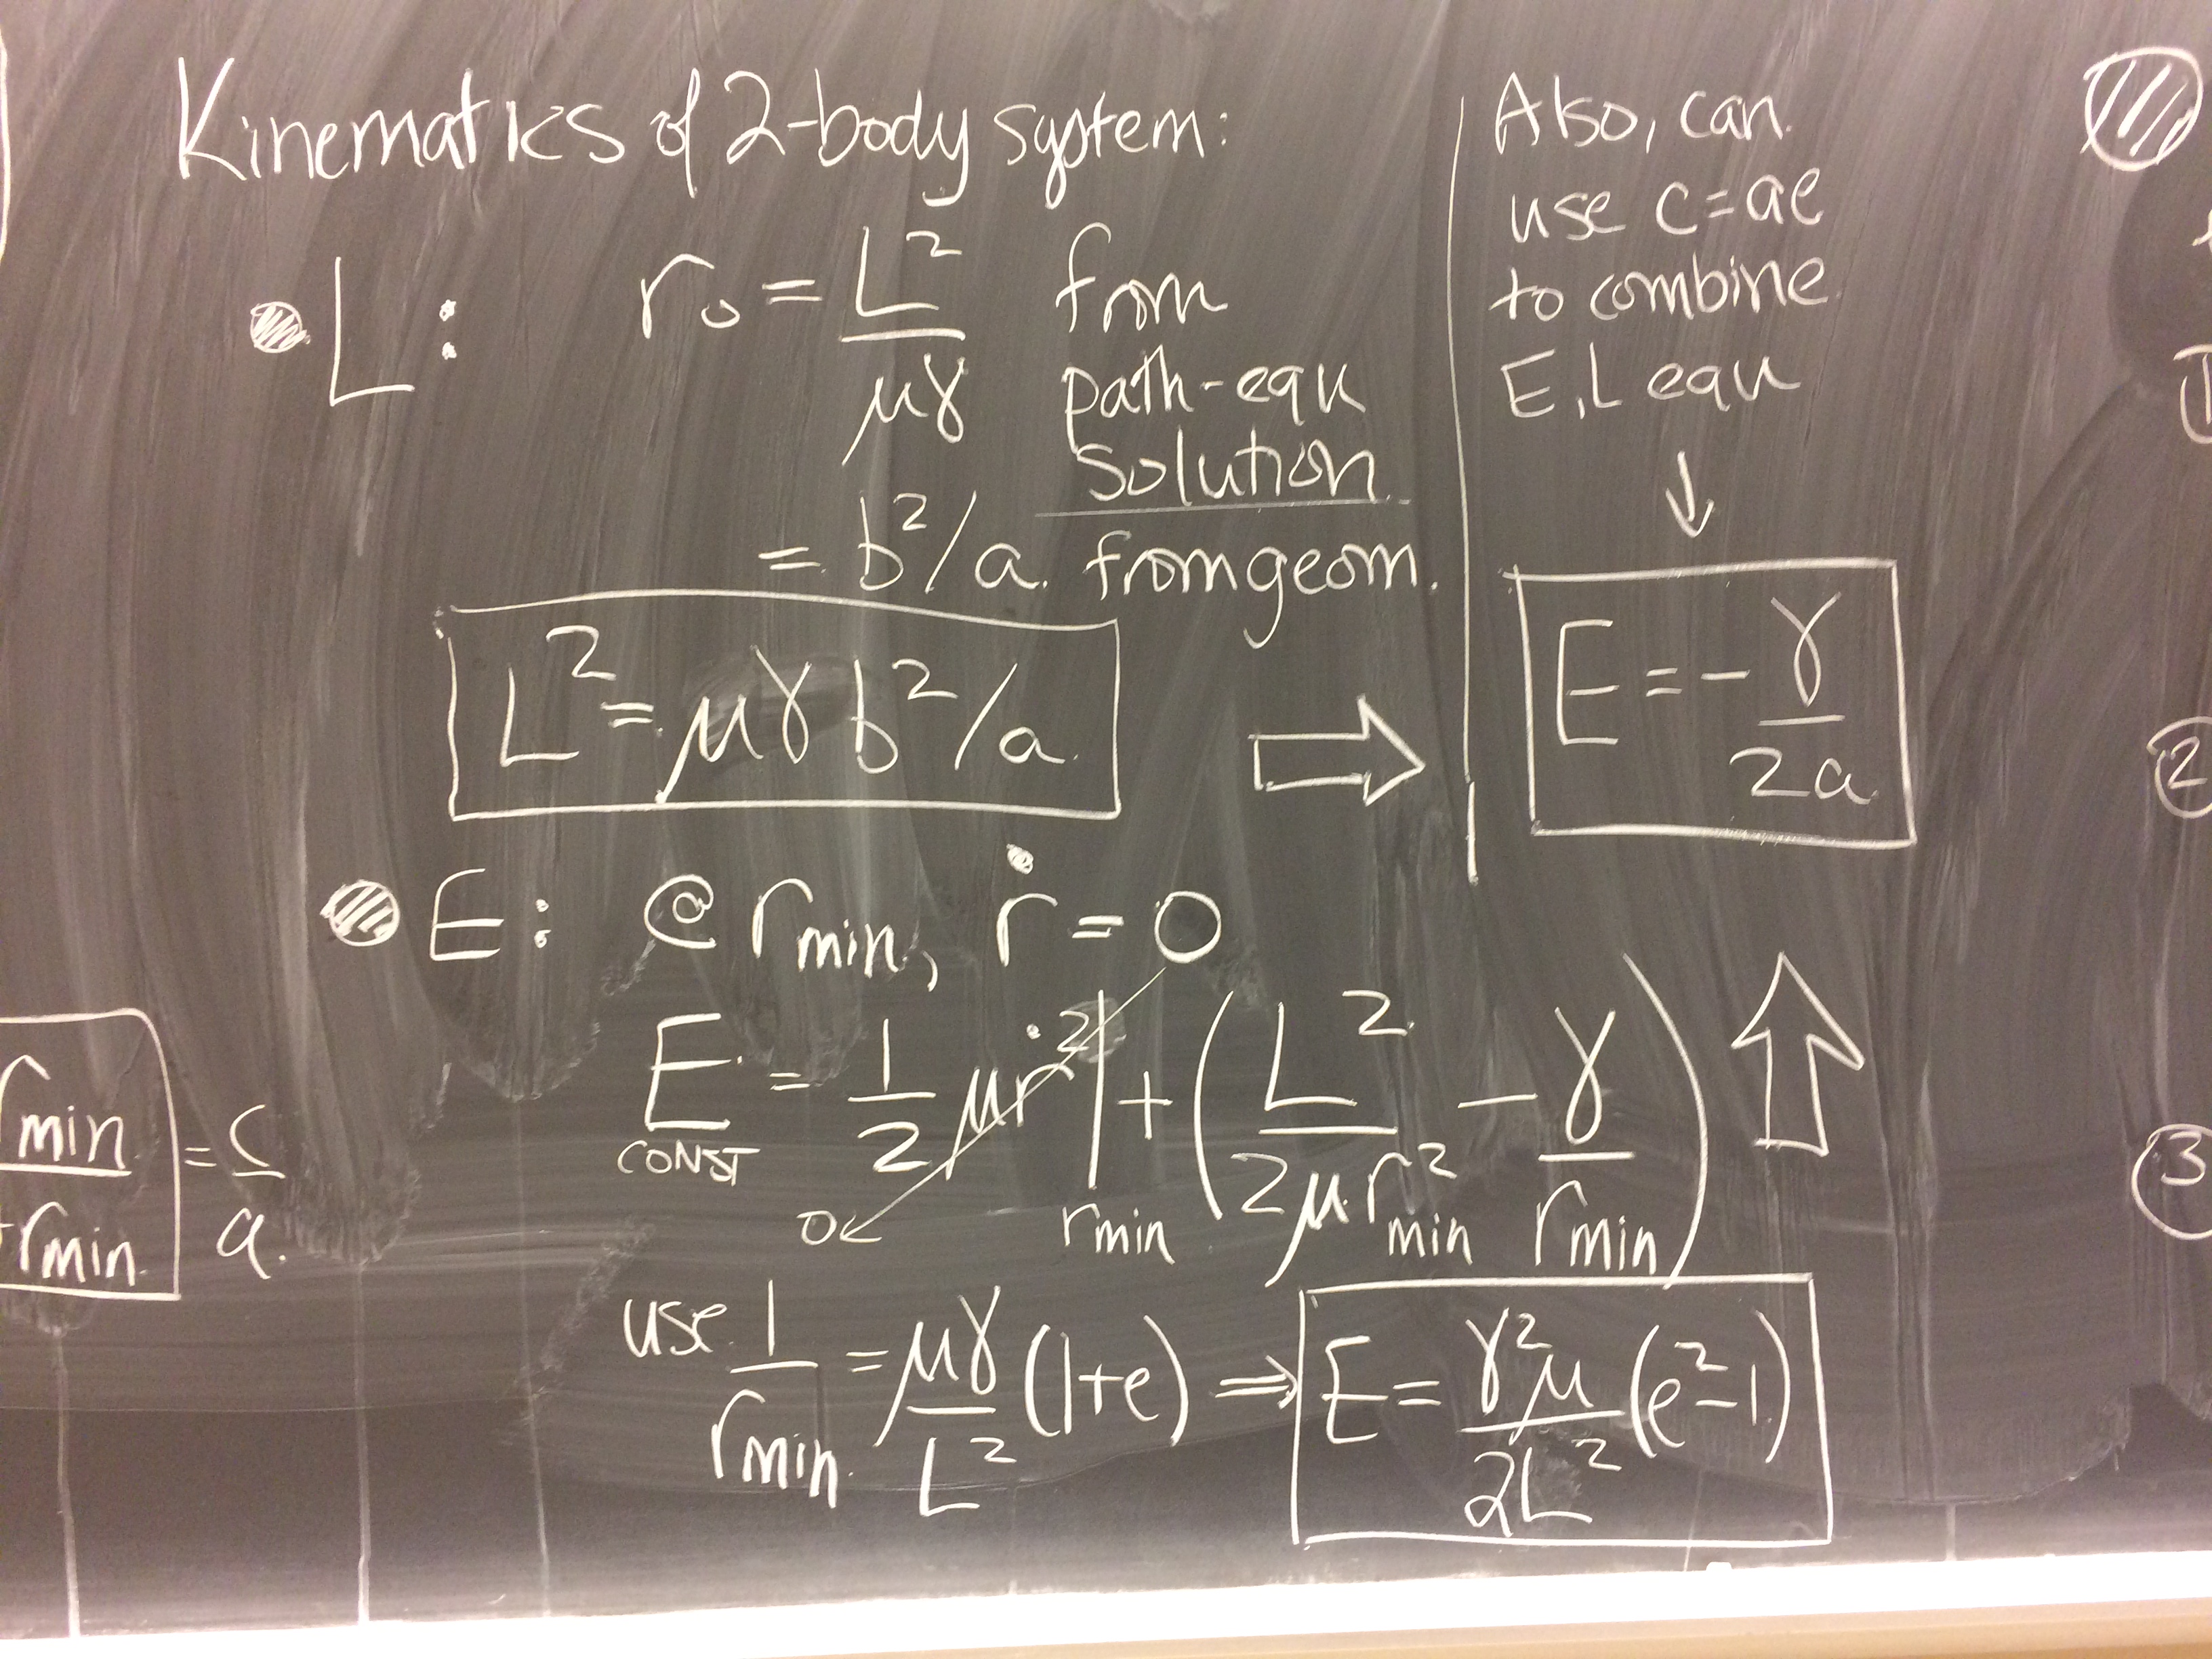 Kinematics of 2-body system:
L: r₀ = L²/μγ from
path-equ
solution
= b²/a. from geom.
L² = μγ b²/a
Also, can
use c=ae
to combine
E, L equ
↓
E = -γ/2a
⇒
E: @ r_min, ṙ = 0
E = ½ μṙ² | r_min + (L²/2μr²_min − γ/r_min)
CONST
0
use 1/r_min = μγ/L² (1+e) ⇒ E = γ²μ/2L² (e²−1)
r_min
r_min
= c/a
1
2
3